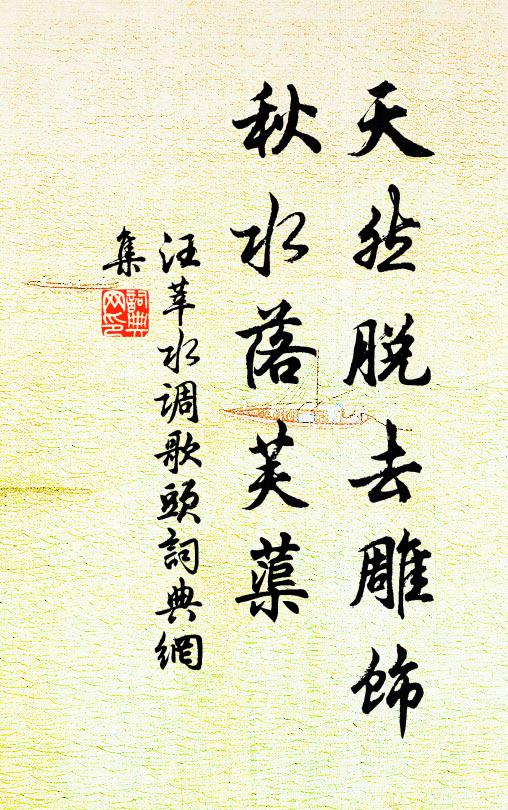 天然脱去雕饰
秋水落芙蕖
汪莘水调歌頭詞典網
集
詞典
网印